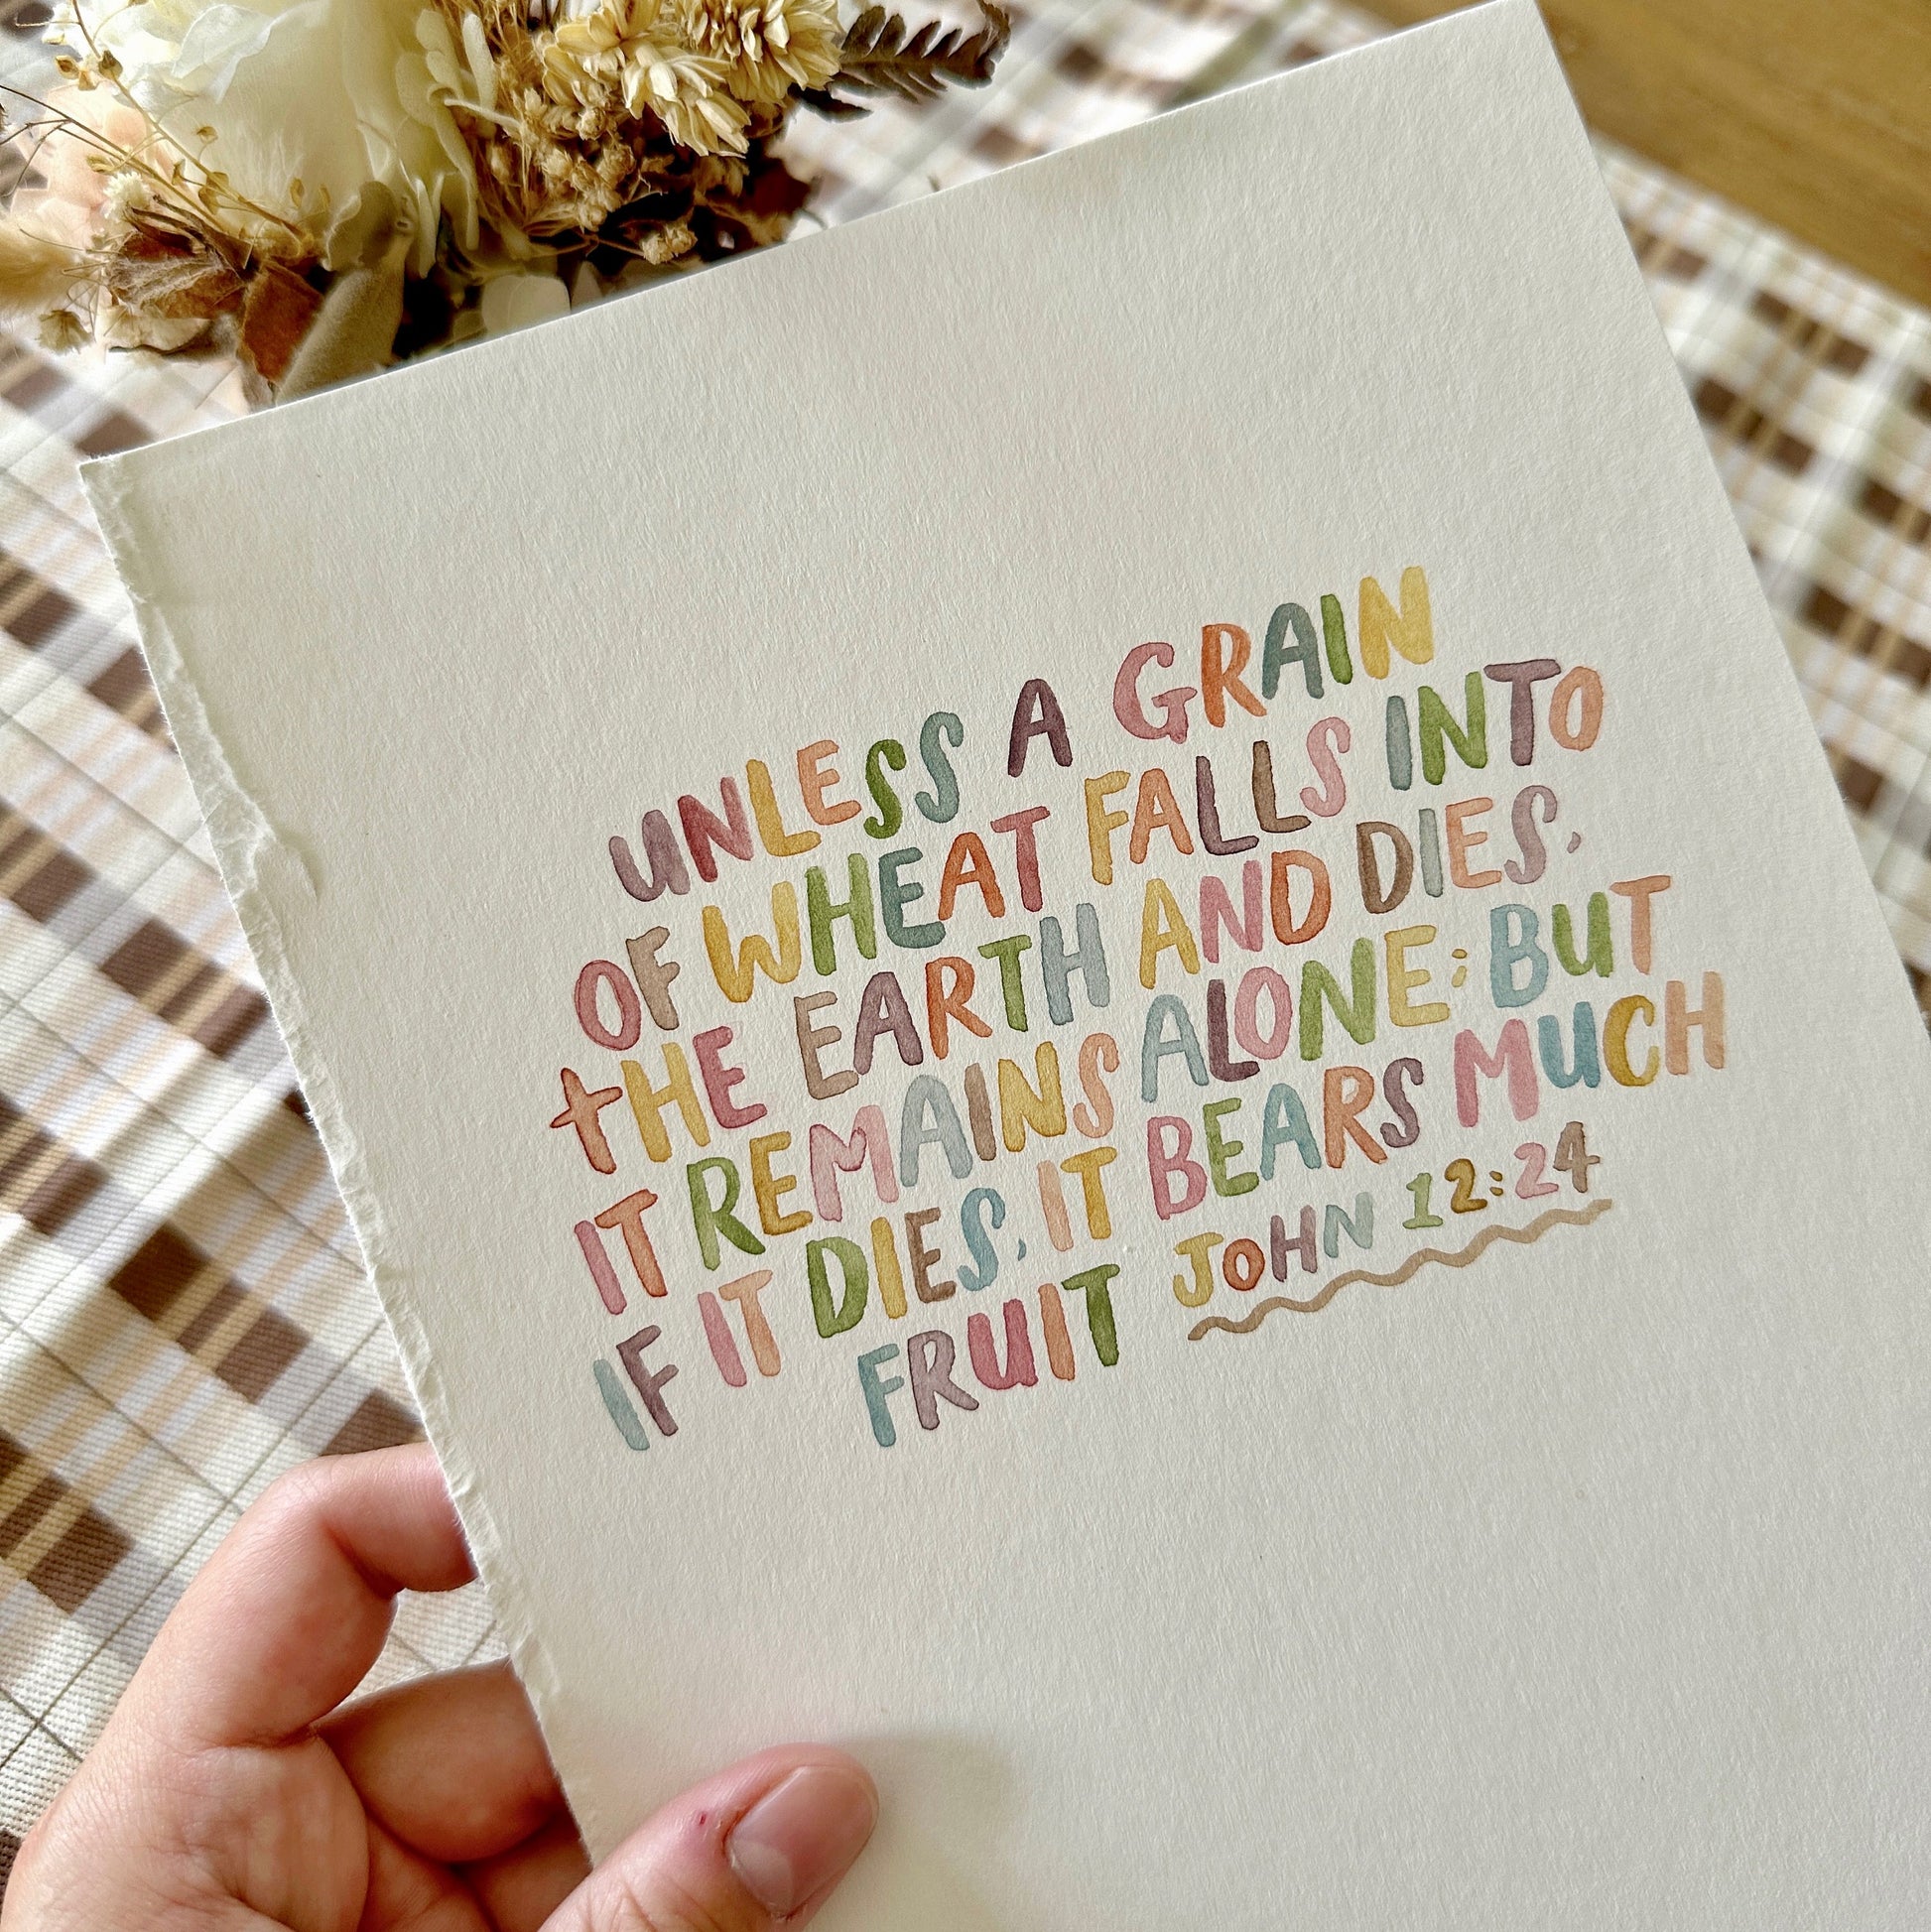 UNLESS A GRAIN
OF WHEAT FALLS INTO
tHE EARTH AND DIES,
IT REMAINS ALONE; BUT
IF IT DIES, IT BEARS MUCH
FRUIT JOHN 12:24